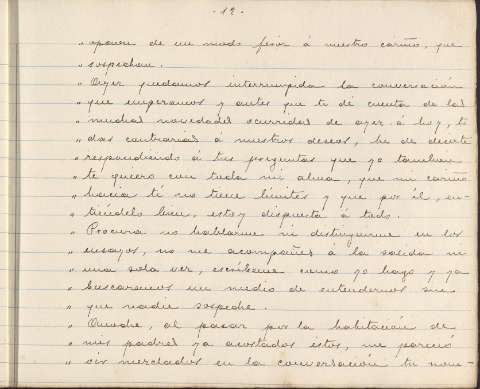 - 12 -
" oponen de un modo feroz á nuestro cariño, que
" sospechan.
" Ayer quedamos interrumpida la conversación
" que empezamos y antes que te dé cuenta de las
" muchas novedades ocurridas de ayer á hoy, to-
" das contrarias á nuestros deseos, he de decirte
" respondiendo á tus preguntas que yo tambien
" te quiero con toda mi alma, que mi cariño
" hacia tí no tiene límites y que por él, en-
" tiéndelo bien, estoy dispuesta á todo.
" Procura no hablarme ni distinguirme en los
" ensayos, no me acompañes á la salida ni
" una sola vez, escríbeme como yo hago y ya
" buscaremos un medio de entendernos sin
" que nadie sospeche.
" Anoche, al pasar por la habitación de
" mis padres ya acostados estos, me pareció
" oir mezclados en la conversación tu nom-